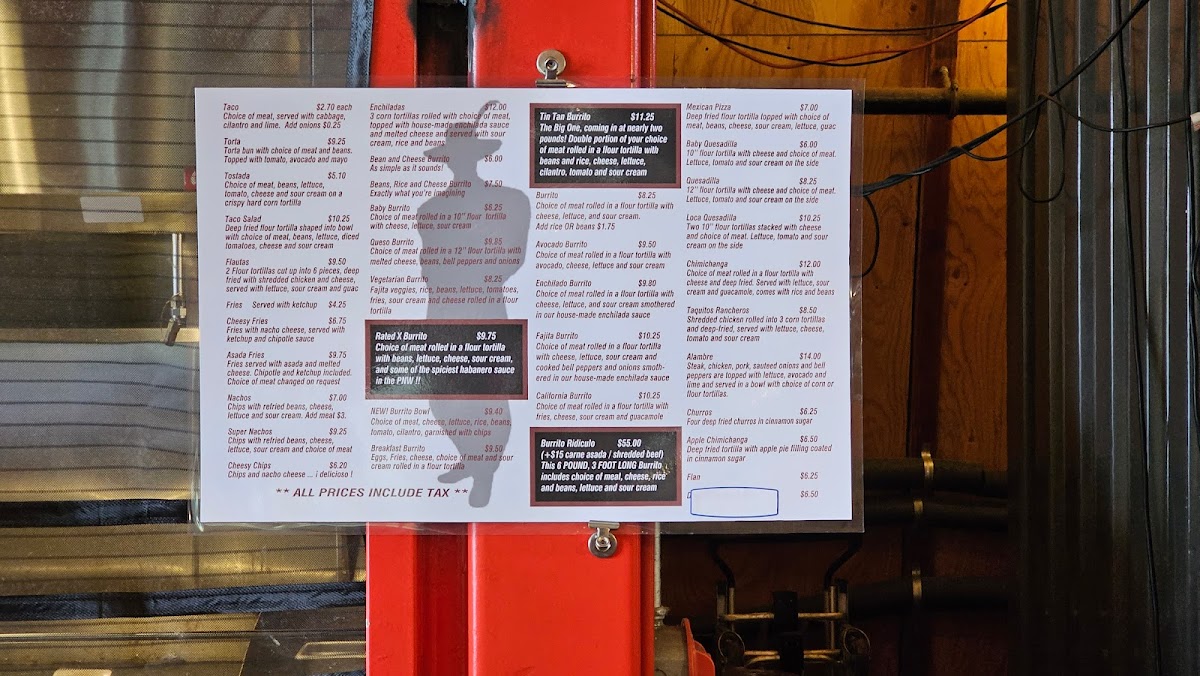 Taco $2.70 each
Choice of meat, served with cabbage,
cilantro and lime. Add onions $0.25
Torta $9.25
Torta bun with choice of meat and beans.
Topped with tomato, avocado and mayo
Tostada $5.10
Choice of meat, beans, lettuce,
tomato, cheese and sour cream on a
crispy hard corn tortilla
Taco Salad $10.25
Deep fried flour tortilla shaped into bowl
with choice of meat, beans, lettuce, diced
tomatoes, cheese and sour cream
Flautas $9.50
2 Flour tortillas cut up into 6 pieces, deep
fried with shredded chicken and cheese,
served with lettuce, sour cream and guac
Fries Served with ketchup $4.25
Cheesy Fries $6.75
Fries with nacho cheese, served with
ketchup and chipotle sauce
Asada Fries $9.75
Fries served with asada and melted
cheese. Chipotle and ketchup included.
Choice of meat changed on request
Nachos $7.00
Chips with refried beans, cheese,
lettuce and sour cream. Add meat $3.
Super Nachos $9.25
Chips with refried beans, cheese,
lettuce, sour cream and choice of meat
Cheesy Chips $6.20
Chips and nacho cheese ... ¡ delicioso !
** ALL PRICES INCLUDE TAX **
Enchiladas $12.00
3 corn tortillas rolled with choice of meat,
topped with house-made enchilada sauce
and melted cheese and served with sour
cream, rice and beans
Bean and Cheese Burrito $6.00
As simple as it sounds!
Beans, Rice and Cheese Burrito $7.50
Exactly what you're imagining
Baby Burrito $6.25
Choice of meat rolled in a 10" flour tortilla
with cheese, lettuce, sour cream
Queso Burrito $9.85
Choice of meat rolled in a 12" flour tortilla with
melted cheese, beans, bell peppers and onions
Vegetarian Burrito $8.25
Fajita veggies, rice, beans, lettuce, tomatoes,
fries, sour cream and cheese rolled in a flour
tortilla
Rated X Burrito $9.75
Choice of meat rolled in a flour tortilla
with beans, lettuce, cheese, sour cream,
and some of the spiciest habanero sauce
in the PNW !!
NEW! Burrito Bowl $9.40
Choice of meat, cheese, lettuce, rice, beans,
tomato, cilantro, garnished with chips
Breakfast Burrito $9.50
Eggs, Fries, cheese, choice of meat and sour
cream rolled in a flour tortilla
Tin Tan Burrito $11.25
The Big One, coming in at nearly two
pounds! Double portion of your choice
of meat rolled in a flour tortilla with
beans and rice, cheese, lettuce,
cilantro, tomato and sour cream
Burrito $8.25
Choice of meat rolled in a flour tortilla with
cheese, lettuce, and sour cream.
Add rice OR beans $1.75
Avocado Burrito $9.50
Choice of meat rolled in a flour tortilla with
avocado, cheese, lettuce and sour cream
Enchilado Burrito $9.80
Choice of meat rolled in a flour tortilla with
cheese, lettuce, and sour cream smothered
in our house-made enchilada sauce
Fajita Burrito $10.25
Choice of meat rolled in a flour tortilla
with cheese, lettuce, sour cream and
cooked bell peppers and onions smoth-
ered in our house-made enchilada sauce
California Burrito $10.25
Choice of meat rolled in a flour tortilla with
fries, cheese, sour cream and guacamole
Burrito Ridiculo $55.00
(+$15 carne asada / shredded beef)
This 6 POUND, 3 FOOT LONG Burrito
includes choice of meat, cheese, rice
and beans, lettuce and sour cream
Mexican Pizza $7.00
Deep fried flour tortilla topped with choice of
meat, beans, cheese, sour cream, lettuce, guac
Baby Quesadilla $6.00
10" flour tortilla with cheese and choice of meat.
Lettuce, tomato and sour cream on the side
Quesadilla $8.25
12" flour tortilla with cheese and choice of meat.
Lettuce, tomato and sour cream on the side
Loca Quesadilla $10.25
Two 10" flour tortillas stacked with cheese
and choice of meat. Lettuce, tomato and sour
cream on the side
Chimichanga $12.00
Choice of meat rolled in a flour tortilla with
cheese and deep fried. Served with lettuce, sour
cream and guacamole, comes with rice and beans
Taquitos Rancheros $8.50
Shredded chicken rolled into 3 corn tortillas
and deep-fried, served with lettuce, cheese,
tomato and sour cream
Alambre $14.00
Steak, chicken, pork, sauteed onions and bell
peppers are topped with lettuce, avocado and
lime and served in a bowl with choice of corn or
flour tortillas.
Churros $6.25
Four deep fried churros in cinnamon sugar
Apple Chimichanga $6.50
Deep fried tortilla with apple pie filling coated
in cinnamon sugar
Flan $6.25
$6.50